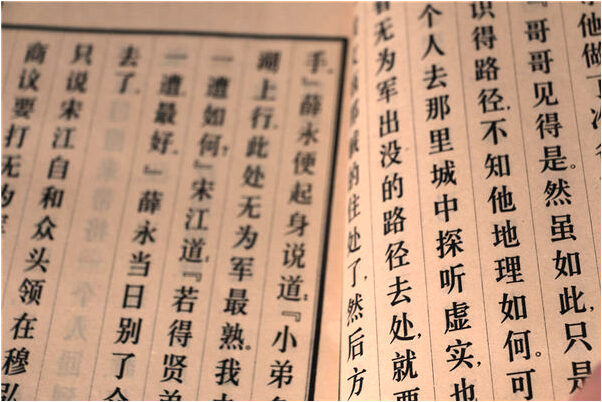 他做了
『哥哥见得是。然虽如此,只是
识得路径,不知他地理如何。可
个人去那里城中探听虚实,也
看无为军出没的路径去处,就要
那贼的住处了,然后方
手。』薛永便起身说道:『小弟多
湖上行,此处无为军最熟。我去
一遭如何?』宋江道:『若得贤弟
一遭最好。』薛永当日别了众
去了。
只说宋江自和众头领在穆弘
商议要打无为军